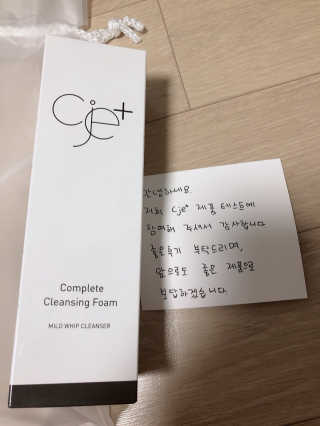 cje+
Complete
Cleansing Foam
MILD WHIP CLEANSER
안녕하세요
저희 cje+ 제품 테스트에
참여해 주셔서 감사합니다
좋은후기 부탁드리며,
앞으로도 좋은 제품으로
보답하겠습니다.